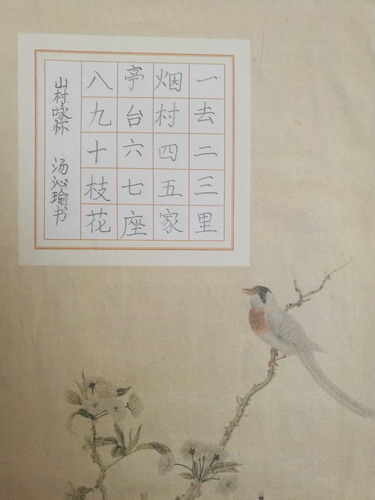 一去二三里
烟村四五家
亭台六七座
八九十枝花
山村咏怀 汤沁瑜书